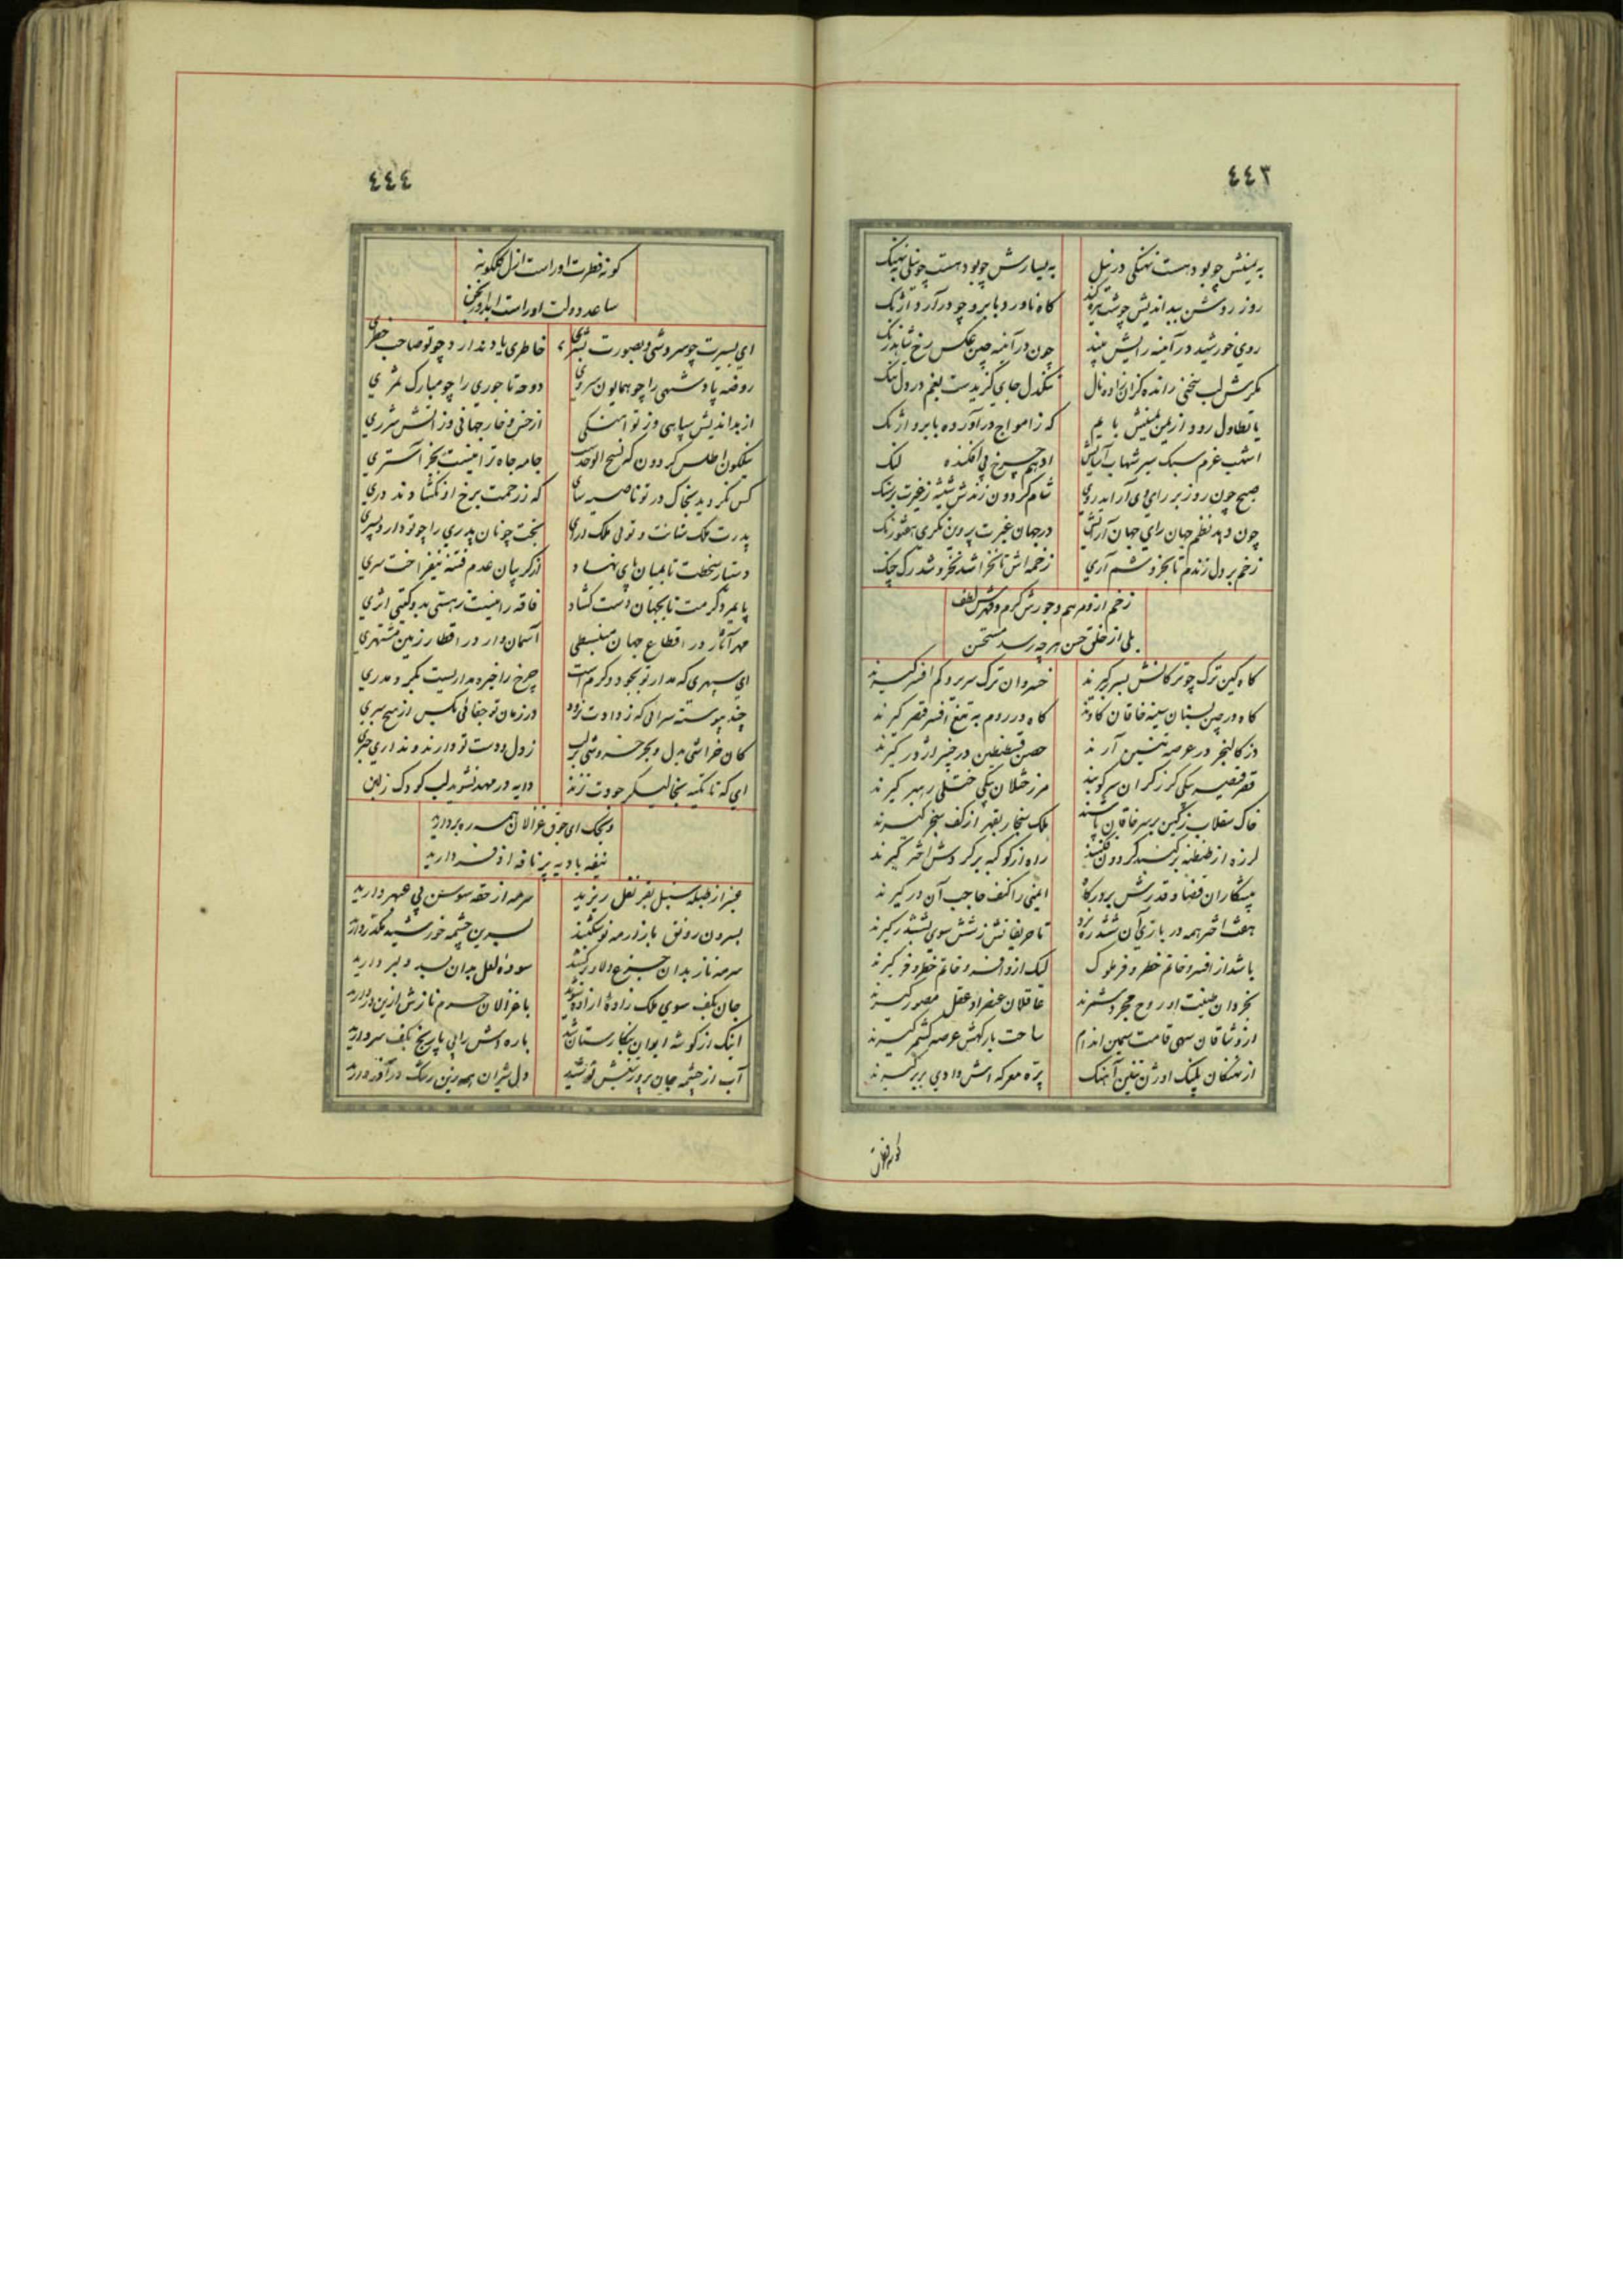 ٤٤٣
به یمینش چو بود هست نهنگی در نیل به یسارش چو بود هست چو نیلی به نهنک
روز روشن ببداندیش چو شب تیره کند گاه ناورد بابرو چو درآرد آژنک
روی خورشید در آینه رایش بیند چون در آینه چین عکس رخ شاهد زنک
مکرش لب سخنی رانده گران زاده نال تنکدل جای گزیدست بغم در دل تنک
با تطاول رود از یمن یمینش با یم که ز امواج درآورده بابرو آژنک
اشهب عزم سبک سیر شهاب آسایش ادهم چرخ پی افکنده لنک
صبح چون روز بر رای وی آراید روی شام گردون زندش شیشه ز غیرت بر سنک
چون دهد نظم جهان رای جهان آرایش در جهان غیرت پروین نگری هفتورنک
زخم بر دل زندم تا بخروشم آری زخمه اش تا نخراشد نخروشد رک چنک
زخم ازو مرهم و جورش کرم و قهرش لطف
بلی از خلق حسن هر چه رسد مستحسن
گاه کین ترک چو ترکانش بسر برگیرند خسروان ترک سریر و کم افسر گیرند
گاه در چین بسنان سینه خاقان کاوند گاه در روم به تیغ افسر قیصر گیرند
دز کالنجر در عرصه تنین آرند حصن قسطنطین در چنبر اژدر گیرند
قصر قیصر بیکی گرز گران سر کوبند مرز ختلان بیکی ختلی رهبر گیرند
خاک سقلاب ز کین بر سر خاقان پاشند ملک سنجار بقهر از کف سنجر گیرند
لرزه از طنطنه بر گنبد گردون فکنند راه از کوکبه بر گردش اختر گیرند
پیشکاران قضا و قدرش بر درگاه ایمنی را کنف حاجب آن در گیرند
هفت اختر همه در بازی آن ششدره نرد تا حریفانش ز شش سوی بششدر گیرند
باشد از افسر و خاتم خطر و فر ملوک لیک ازو افسر و خاتم خطر و فر گیرند
بخردان طینت او روح مجرد شمرند عاقلان عنصر او عقل مصور گیرند
از وشاقان سهی قامت سیمین اندام ساحت بارگهش عرصه کشمر گیرند
از نهنگان پلنک اوژن تنین آهنک پره معرکه اش وادی بربر گیرند
گونه فطرت
٤٤٤
گونه فطرت او راست ازل گلگونه
ساعد دولت او راست ابد آورنجن
ای بسیرت چو سروشی و بصورت بشری خاطری یاد ندارد چو تو صاحب خطری
روضه پادشهی را چو همایون سروی دوحه تاجوری را چو مبارک ثمری
از بداندیش سپاهی و ز تو آهنکی از خس و خار جهانی و ز آتش شرری
نیلگون اطلس گردون که نسیج الوحدست جامه جاه ترا نیست بجز آستری
کس نگردید بخاک در تو ناصیه سای که ز رحمت برخ او نگشادند دری
پدرت ملک ستانست و توئی ملک آرای بخت چونان پدری را چو تو دارد پسری
دستیار سخطت تا بمیان پای نهاد از گریبان عدم فتنه نیفراخت سری
پایمرد کرمت تا بجهان دست گشاد فاقه را نیست ز هستی بدو گیتی اثری
مهر آثار در اقطاع جهان منبسطی آسمان وار در اقطار زمین مشتهری
ای سپهری که مدار تو بجود و کرم است چرخ را خیره مداریست بگرد مدری
چند پیوسته سرائی که ز دادت نرود در زمان تو جفائی بکس از هیچ سری
کان خراشی بدل و بحر خروشی بر لب ز دل و دست تو دارند و نداری خبری
ای که تا تکیه بخالیگر جودت نزند دایه در مهد نشوید لب کودک ز لبن
وینجک ای جوق غزالان همه ره بردارید
نیفه بادیه پر نافه اذفر دارید
عنبر از طبله سنبل بقرنفل ریزید سرمه از حقه سوسن پی عبهر دارید
بسرون رونق بازار مه نو شکنید بسرین چشمه خورشید مکدر دارید
سرمه ناز بدان جزع دلاور کشید سوده لعل بدان بسد دلبر دارید
جان بکف سوی ملک زاده آزاده شوید با غزالان حرم نازش ازین در دارید
اینک از گوشه ایوان بنگارستان شد باره اش را پی پارنج بکف سر دارید
آب از چشمه جان پرور تیغش نوشید دل شیران همه زین رشک در آذر دارید